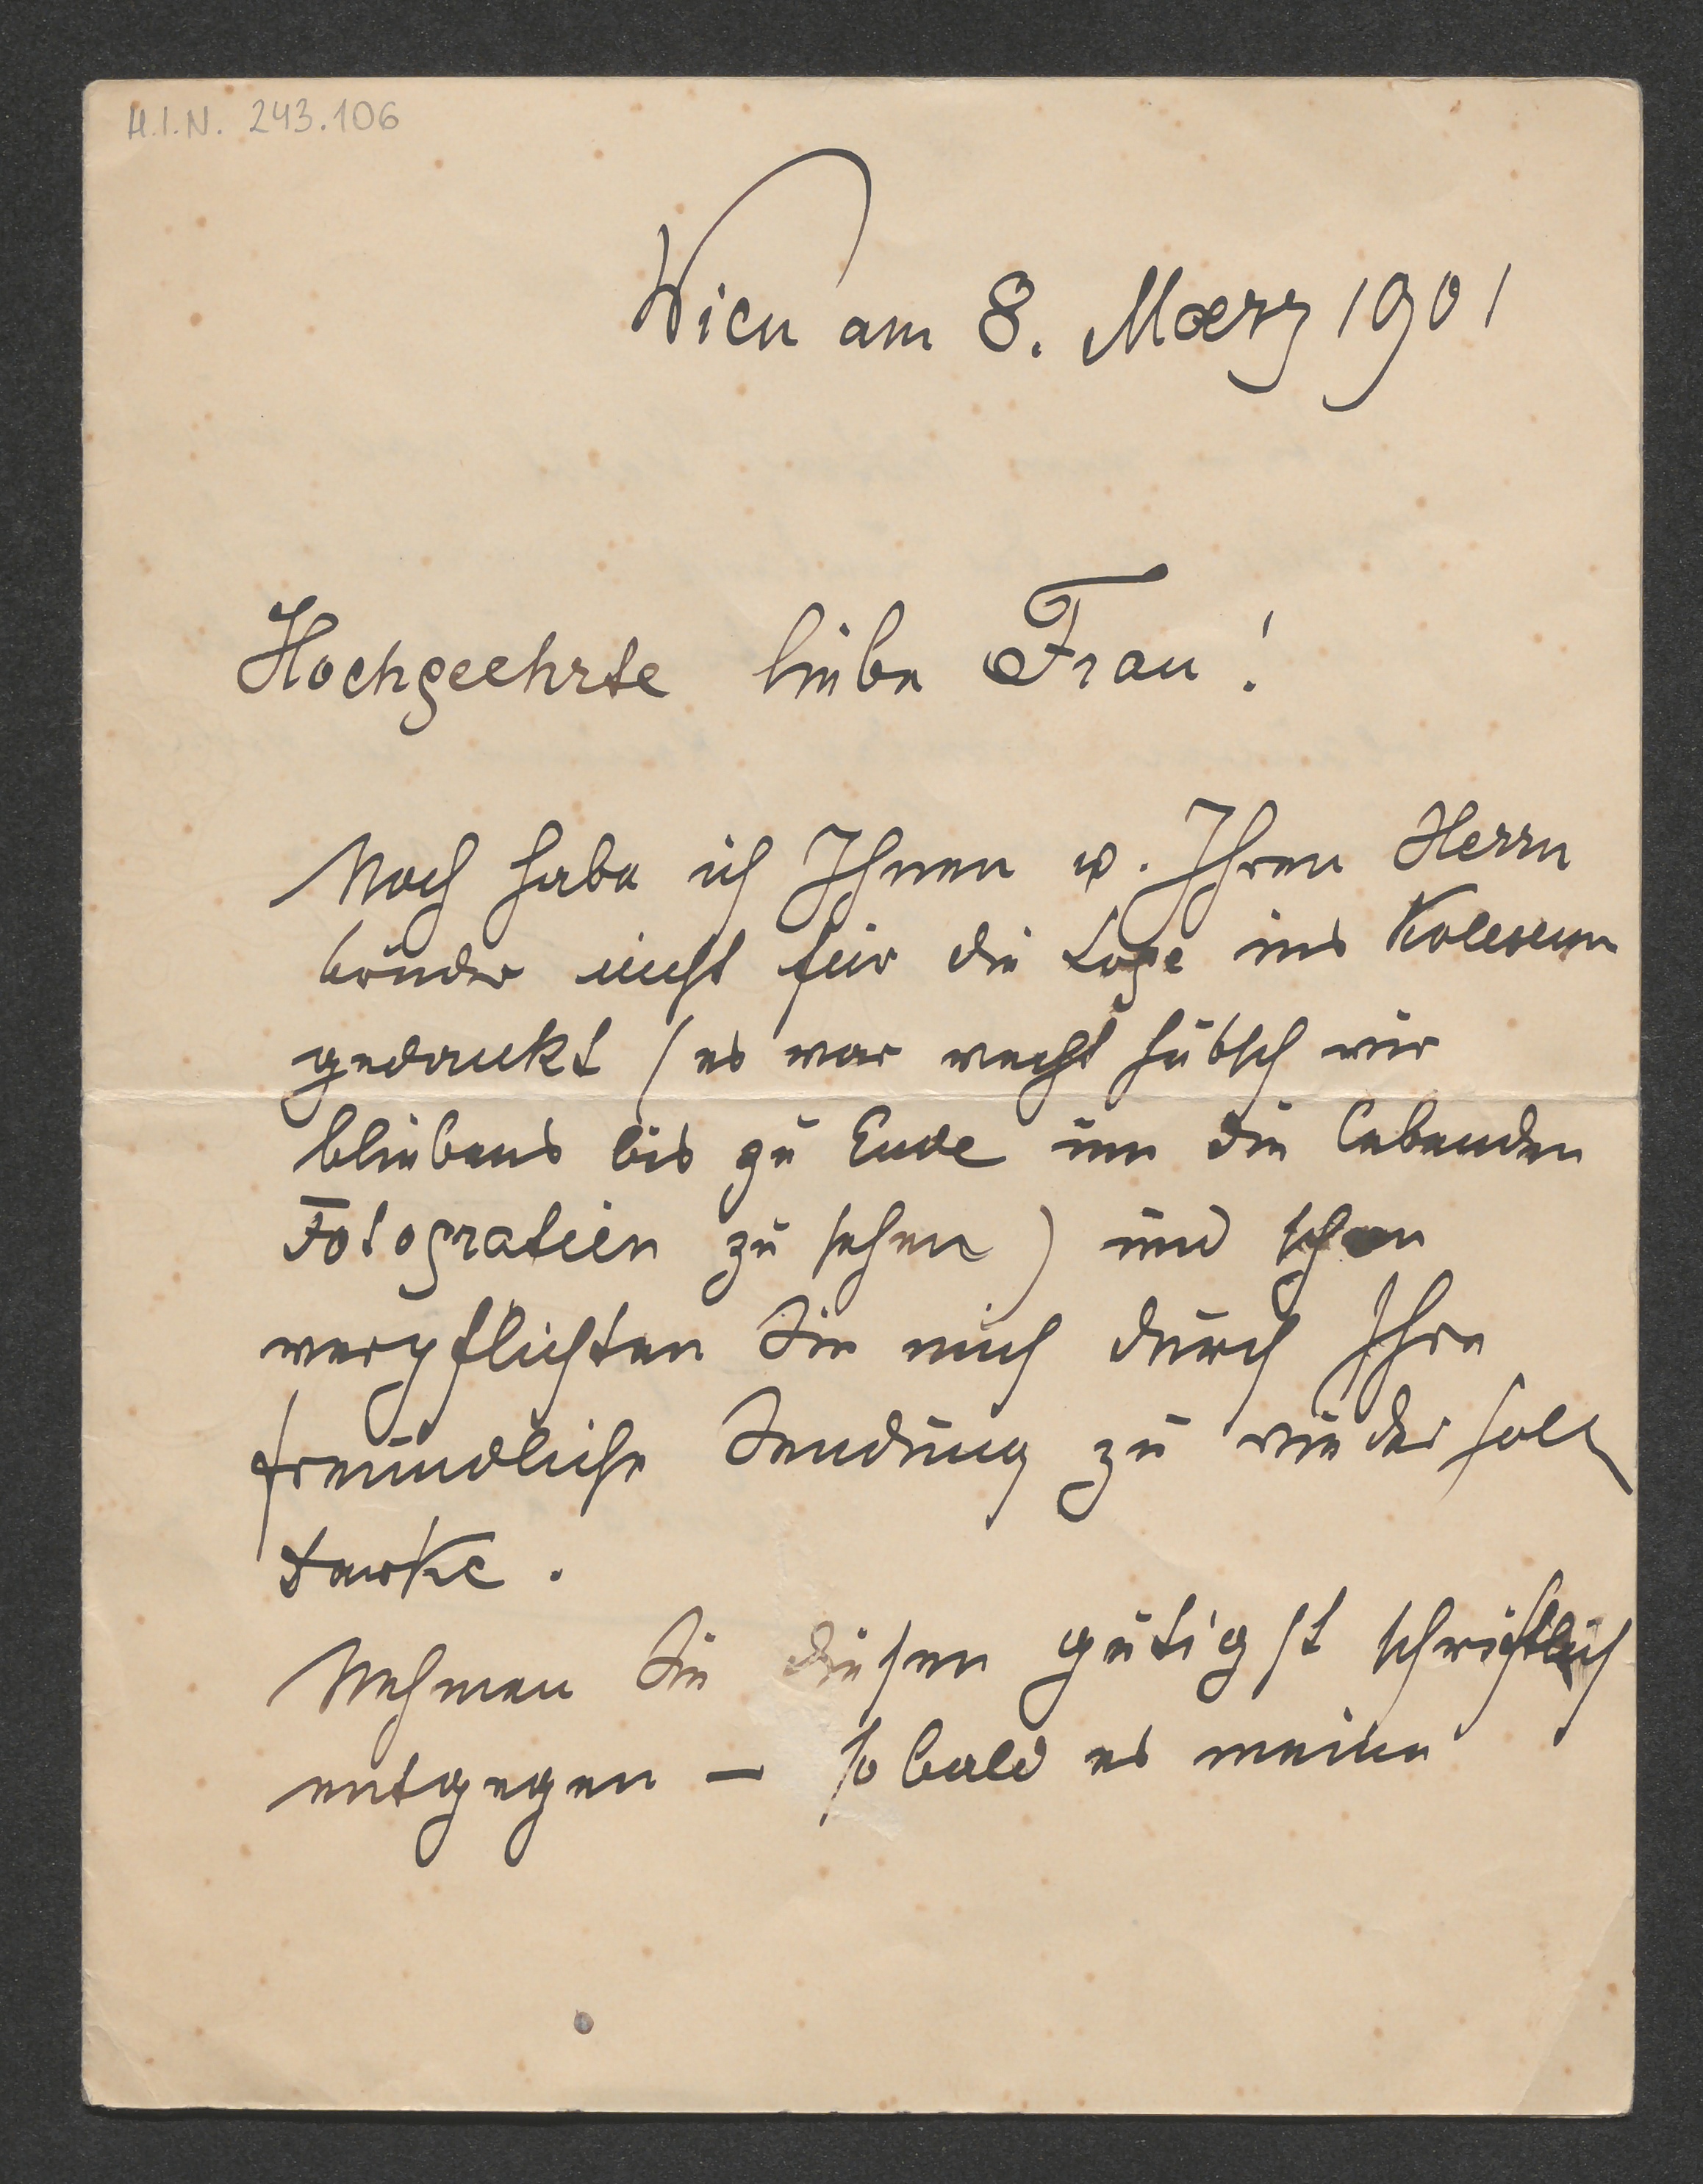 H.I.N. 243.106
Wien am 8. Maerz 1901
Hochgeehrte liebe Frau!
Noch habe ich Ihnen u. Ihren Herrn
bruder nicht für die Loge ins Koleseum
gedankt (es war recht hübsch wir
bliebens bis zu Ende um die lebenden
Fotografieen zu sehen) und schon
verpflichten Sie mich durch Ihre
freundliche Sendung zu wiederholt
Danke.
Nehmen Sie diesen gütigst schriftlich
entgegen – sobald es meine